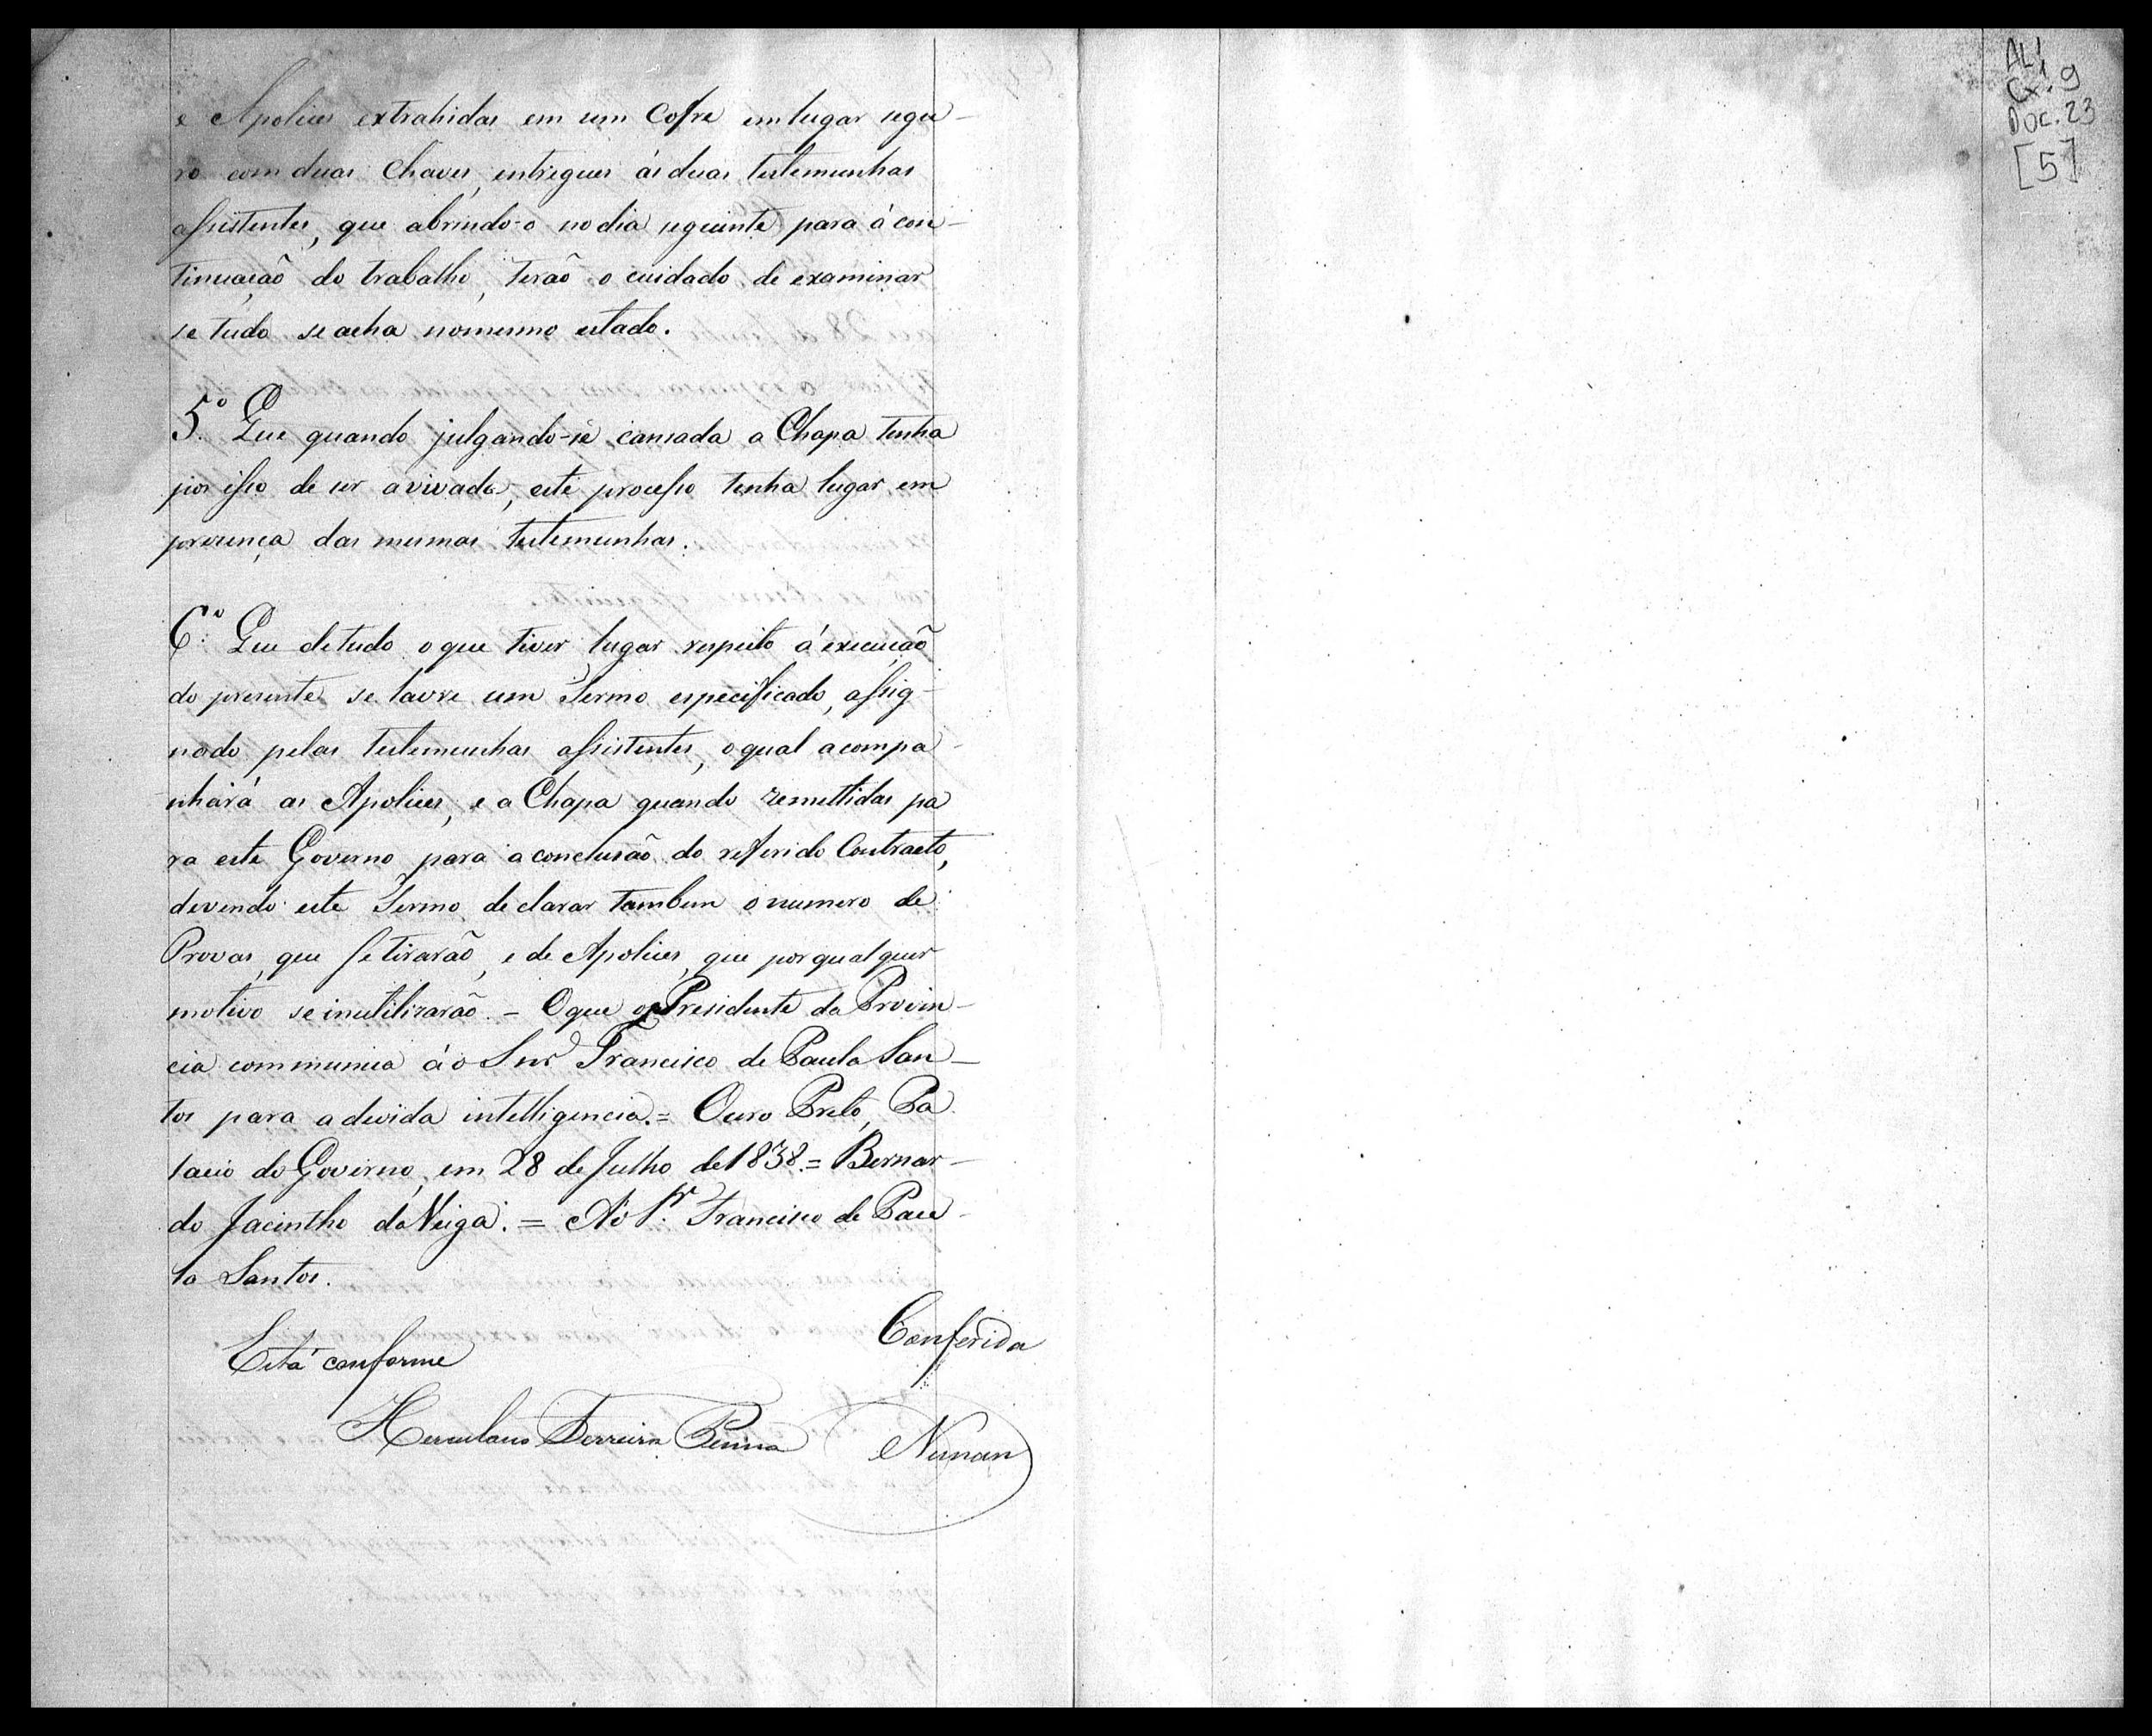 e Apolices extrahidas em um Cofre em lugar segu-
ro com duas Chaves, entregues ás duas testemunhas
assistentes, que abrindo-o no dia seguinte para á con-
tinuação do trabalho, terão o cuidado de examinar
se tudo se acha no mesmo estado.
5.º Que quando julgando-se cansada a Chapa tenha
por isso de ser avivada, este processo tenha lugar em
presença das mesmas testemunhas.
6.º Que de tudo o que tiver lugar respeito á execução
do presente se lavre um Termo especificado, assig-
nado pelas testemunhas assistentes, o qual acompa-
nhará as Apolices, e a Chapa quando remettidas pa
ra este Governo para a conclusão do referido Contracto,
devendo este Termo declarar tambem o numero de
Provas, que se tirarão, e de Apolices, que por qualquer
motivo se inutilizarão. - O que o Presidente da Provin-
cia communica áo Snr Francisco de Paula San-
tos para a devida intelligencia. = Ouro Preto, Pa
lacio do Governo, em 28 de Julho de 1838. = Bernar-
do Jacintho da Veiga. = Ao Sr. Francisco de Pau-
la Santos.
Está conforme
Conferida
Herculano Ferreira Penna
Nunan
AL1
Cx. 9
Doc. 23
[5]